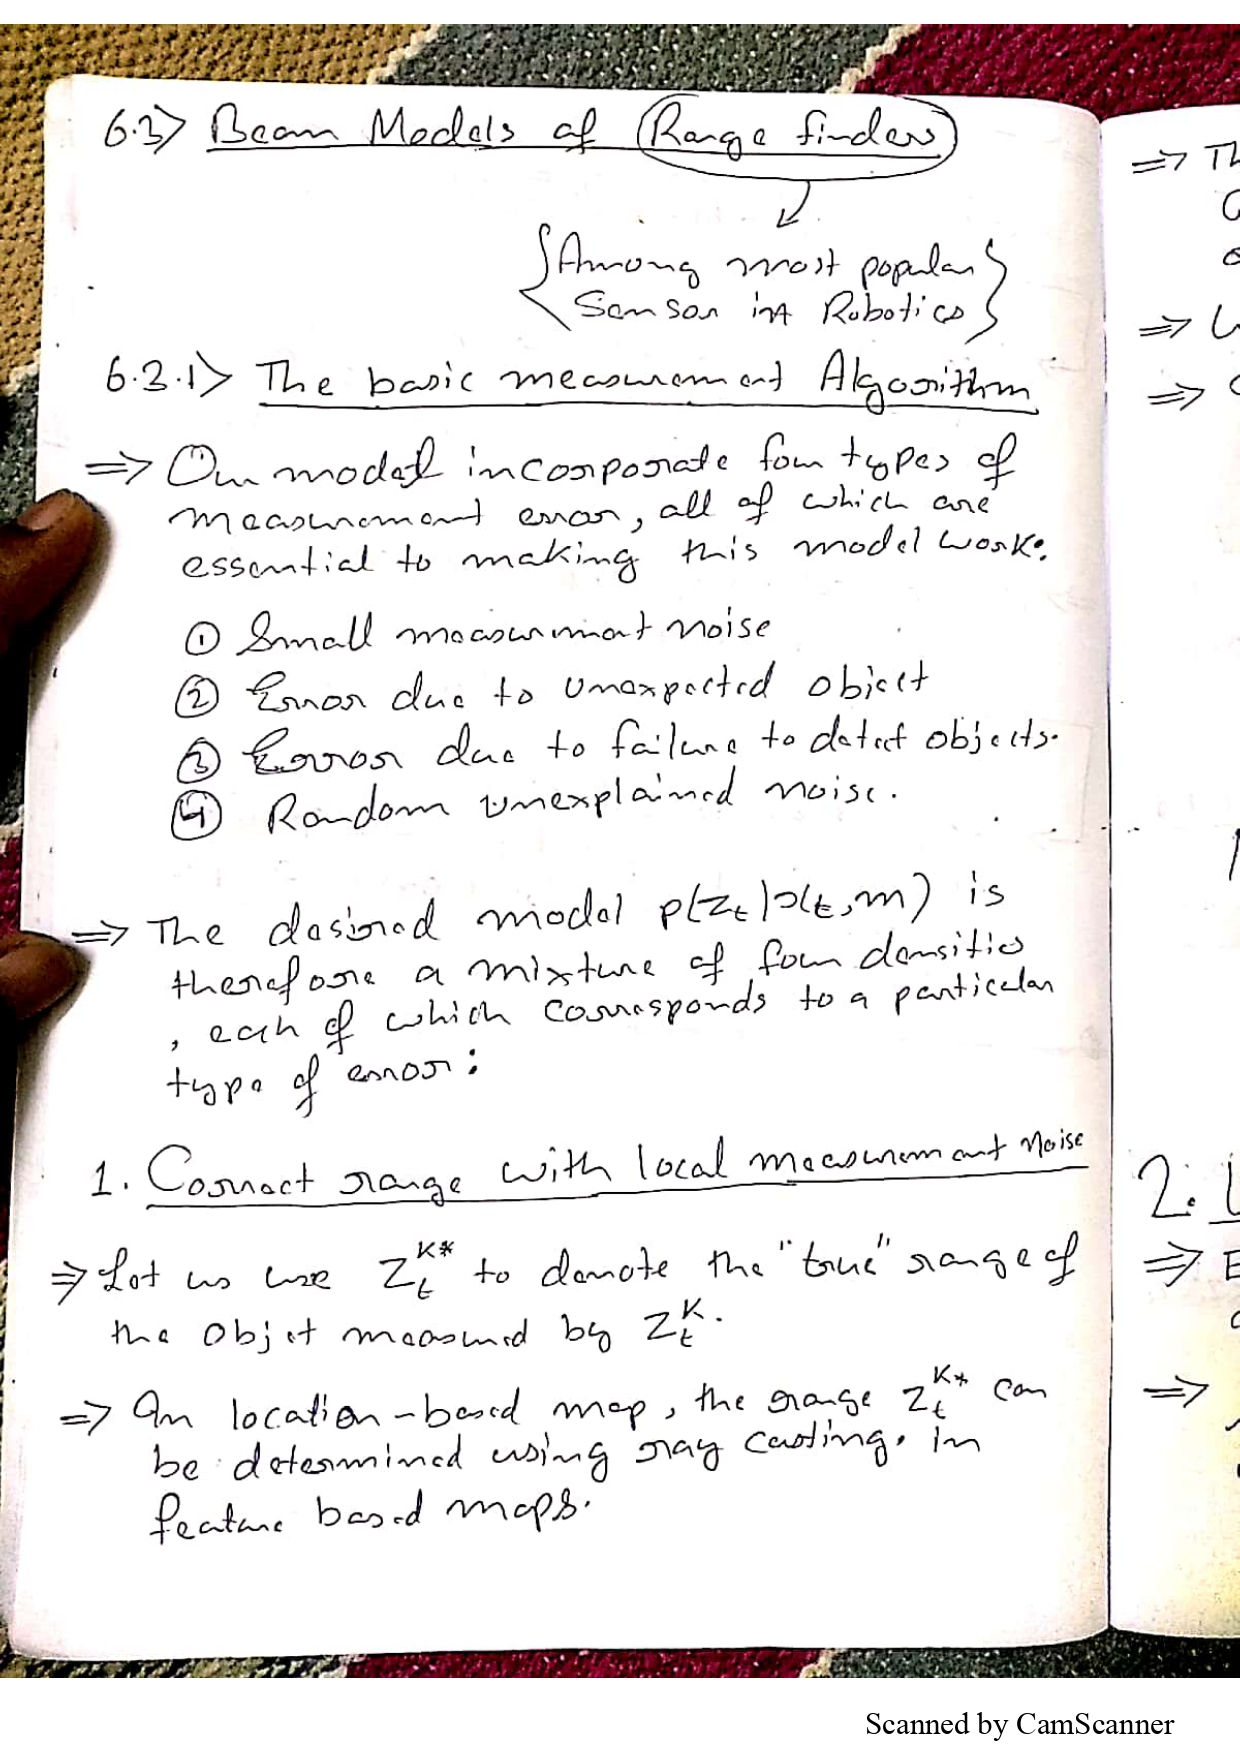 6.3> Beam Models of Range finders
{Among most popular
Sensor in Robotics}
6.3.1> The basic measurement Algorithm
⇒ Our model incorporate four types of
measurement error, all of which are
essential to making this model work:
① Small measurment noise
② Error due to unexpected object
③ Error due to failure to detect objects.
④ Random unexplained noise.
⇒ The desired model p(z_t|x_t, m) is
therefore a mixture of four densities
, each of which corresponds to a particular
type of error:
1. Correct range with local measurement noise
⇒ Let us use Z_t^{K*} to denote the "true" range of
the object measured by Z_t^K.
⇒ In location-based map, the range Z_t^{K*} can
be determined using ray casting. in
feature based maps.
⇒ Th
⇒
⇒
2.
⇒ E
⇒
Scanned by CamScanner